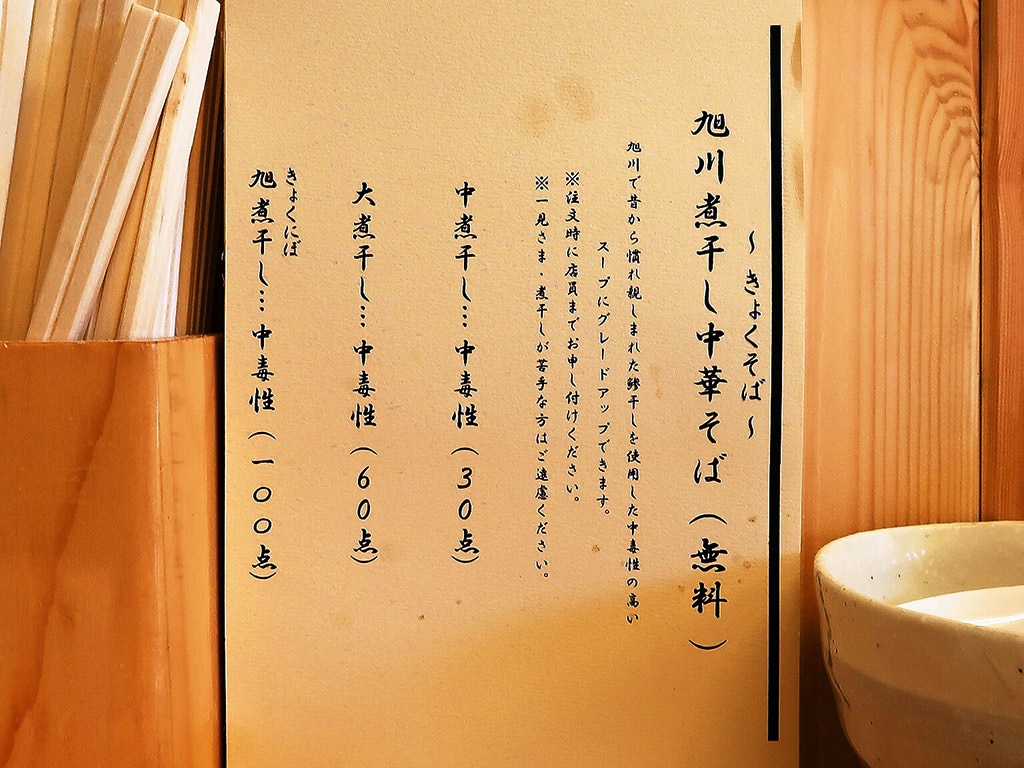 ~きょくそば~
旭川煮干し中華そば(無料)
旭川で昔から慣れ親しまれた鯵干しを使用した中毒性の高い
スープにグレードアップできます。
※注文時に店員までお申し付けください。
※一見さま・煮干しが苦手な方はご遠慮ください。
中煮干し…中毒性(30点)
大煮干し…中毒性(60点)
きょくにぼ
旭煮干し…中毒性(一〇〇点)